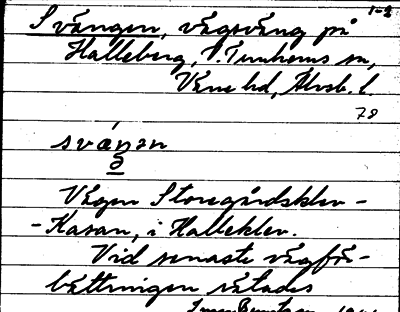 1-2
Svängen, vägsväng på
Halleberg, V. Tunhems sn,
Väne hd, Älvsb. l.
78
sváŋən
Vägen Storegårdsklev -
- Kasan, i Halleklev.
Vid senaste vägför-
bättringen rätades